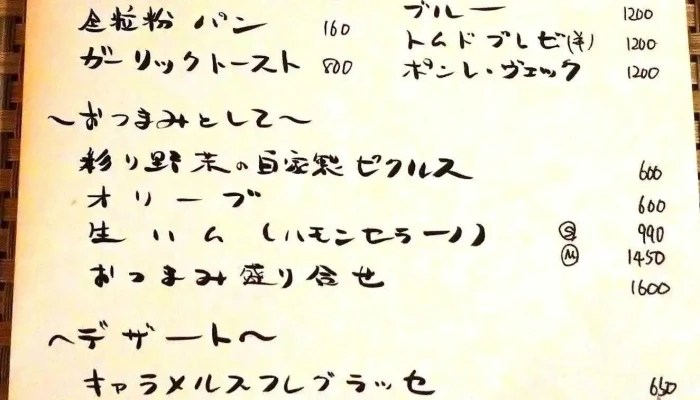 全粒粉 パン 160
ガーリックトースト 800
ブルー 1200
トムドブレゼ(羊) 1200
ポンレ・ヴェック 1200
～おつまみとして～
彩り野菜の自家製ピクルス 600
オリーブ 600
生ハム (ハモンセラーノ) Ⓢ 990
Ⓜ 1450
おつまみ盛り合せ 1600
～デザート～
キャラメルスフレグラッセ 650